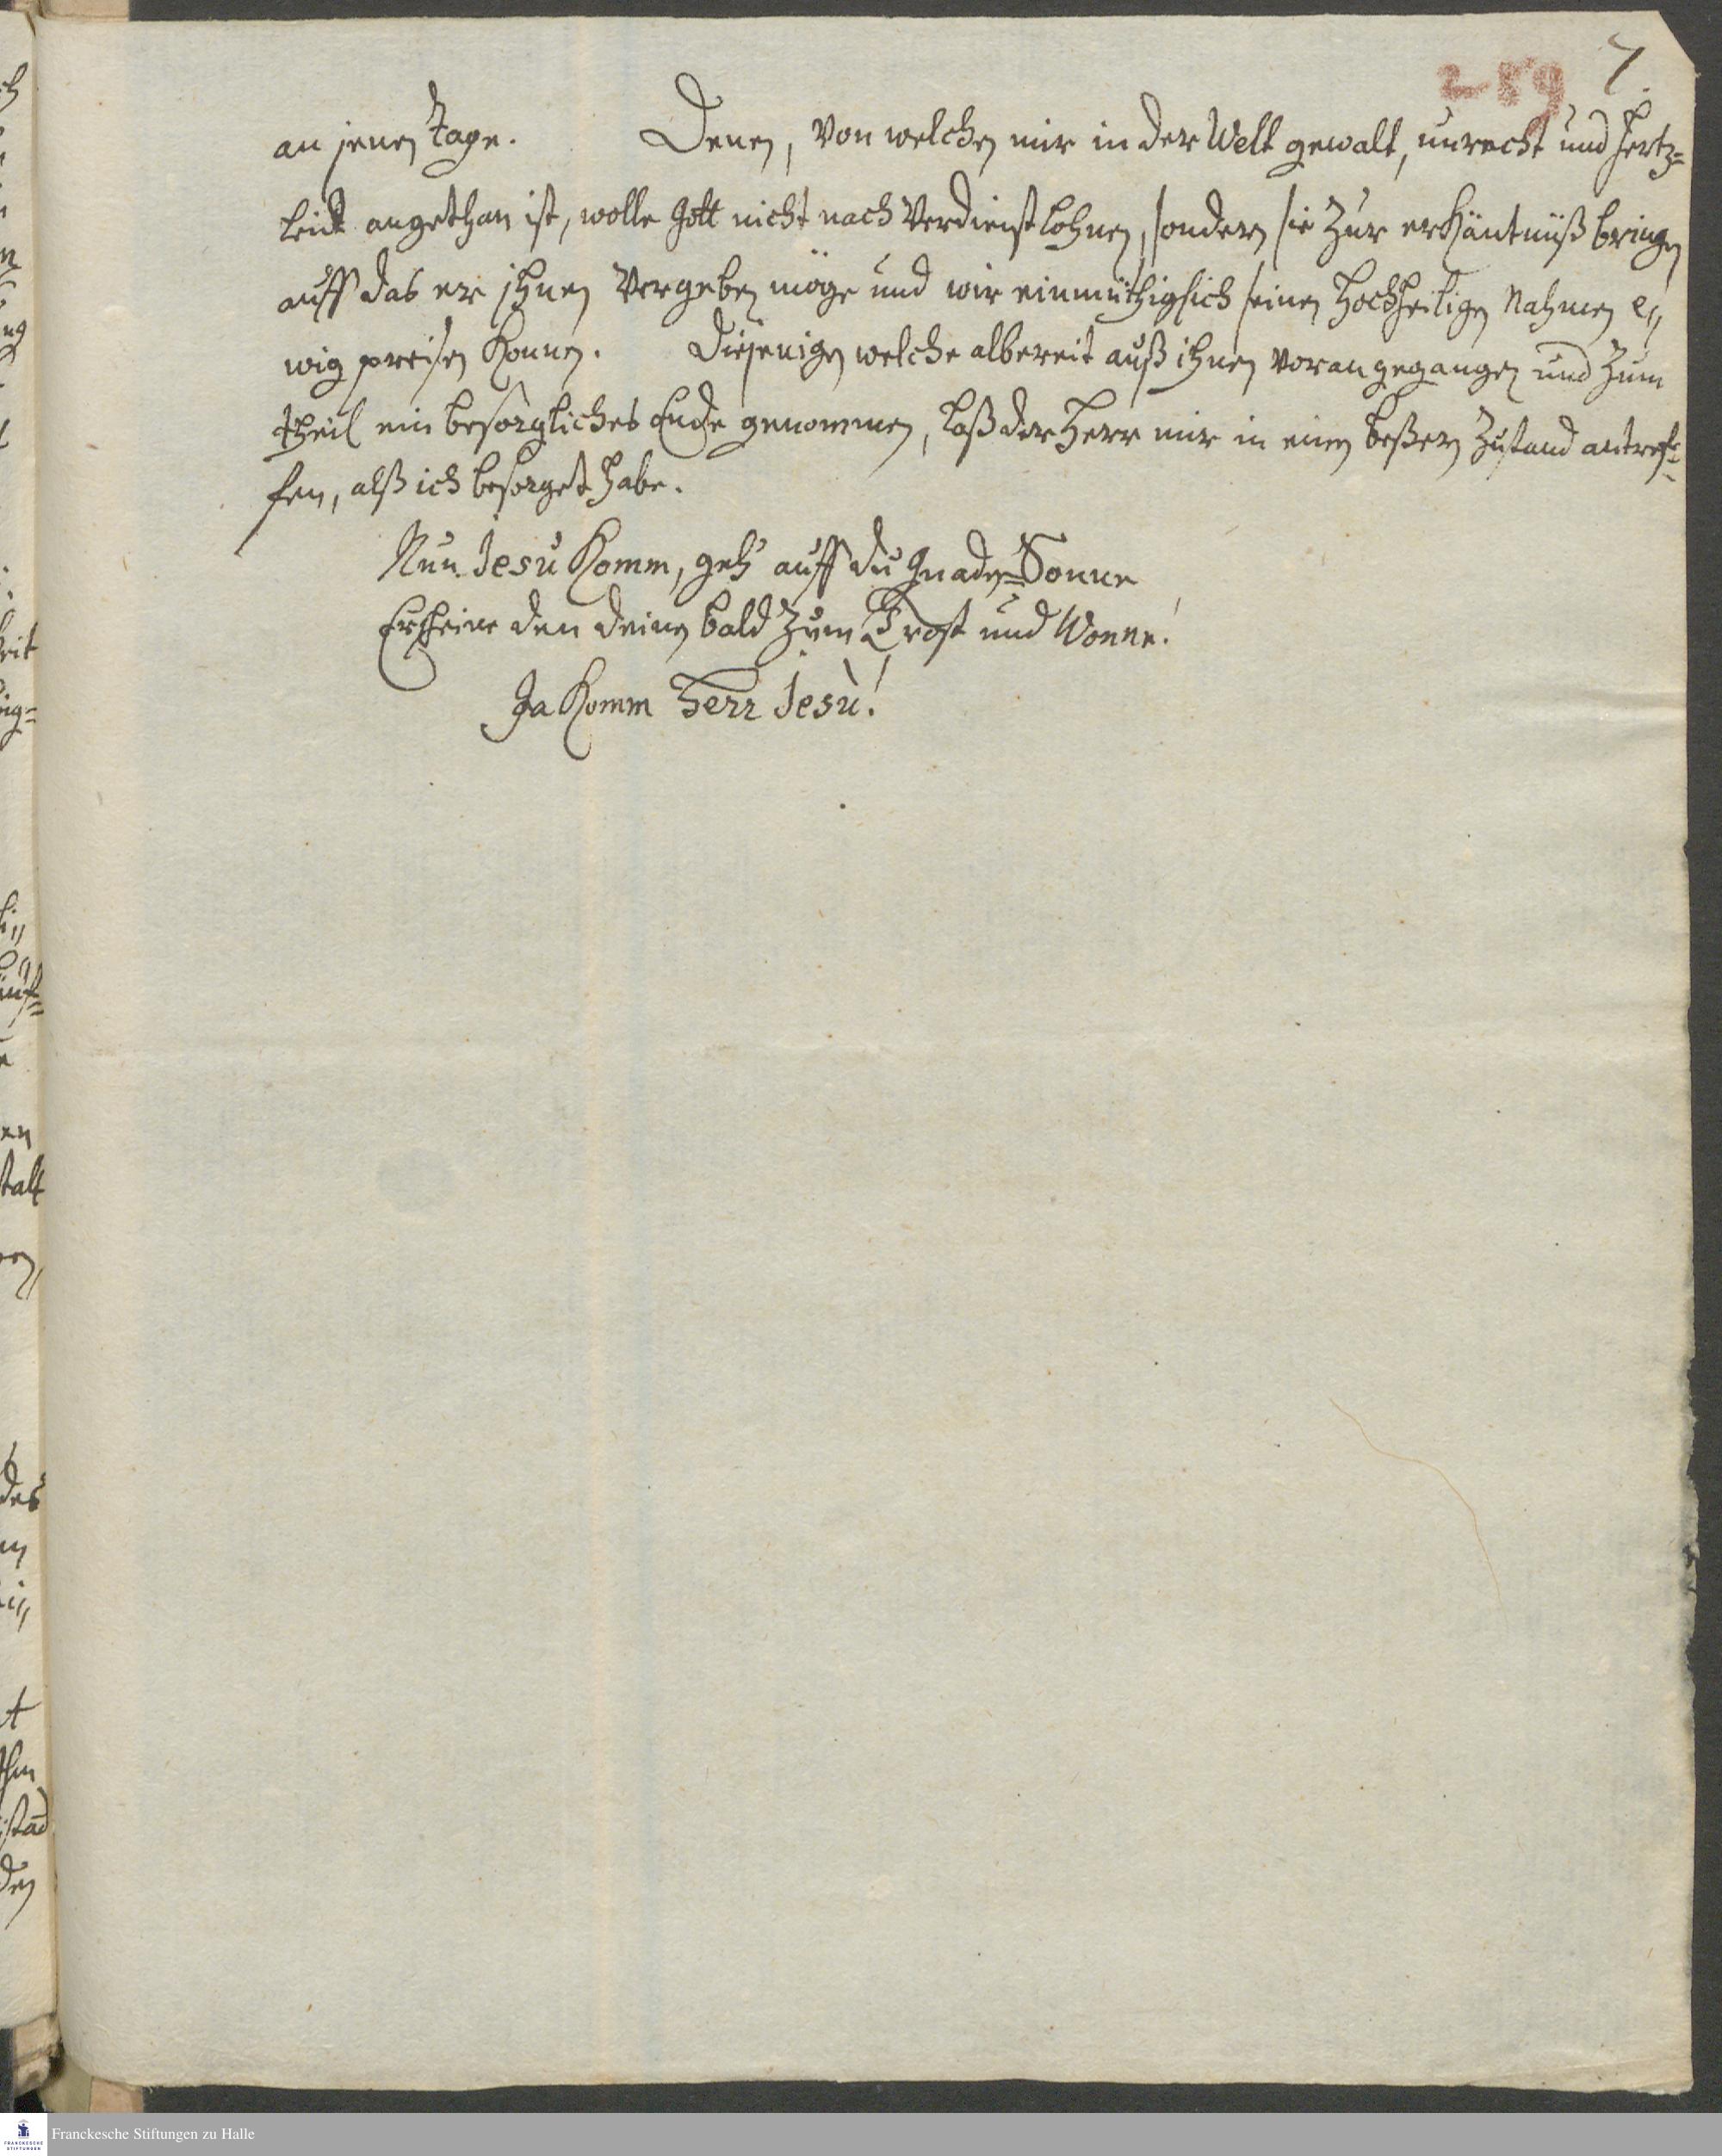 289 7.
an jenen Tage. Denen, von welchen mir in der Welt gewalt, unrecht und Hertz=
leid angethan ist, wolle Gott nicht nach Verdienst lohnen, sondern sie zur erkäntnüß bringen
auff das er jhnen vergeben möge und wir einmüthiglich seinen Hochheiligen Nahmen e„
wig preisen konnen. Diejenigen welche albereit auß ihnen vorangegangen und zum
theil ein besorgliches Ende genommen, laß der Herr mir in einen beßern Zustand antref=
fen, alß ich besorget habe.
Nun Jesu komm, geh auff du Gnaden=Sonne
Erscheine den deinen bald zum Trost und Wonne!
Ja komm Herr Jesu!
Franckesche Stiftungen zu Halle